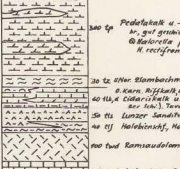 300 tp Pedatakalk u.-
hr, gut geschic
@ Halorella p
H. rectifron
30 tz UNor. Zlambachm
ö. Karn. Riffkalk,
60 tlk,d Cidariskalk u.
zer Sch.). Tu
50 tls Lunzer Sandste
40 tlf Halobienschf., Ha
400 twd Ramsaudolom